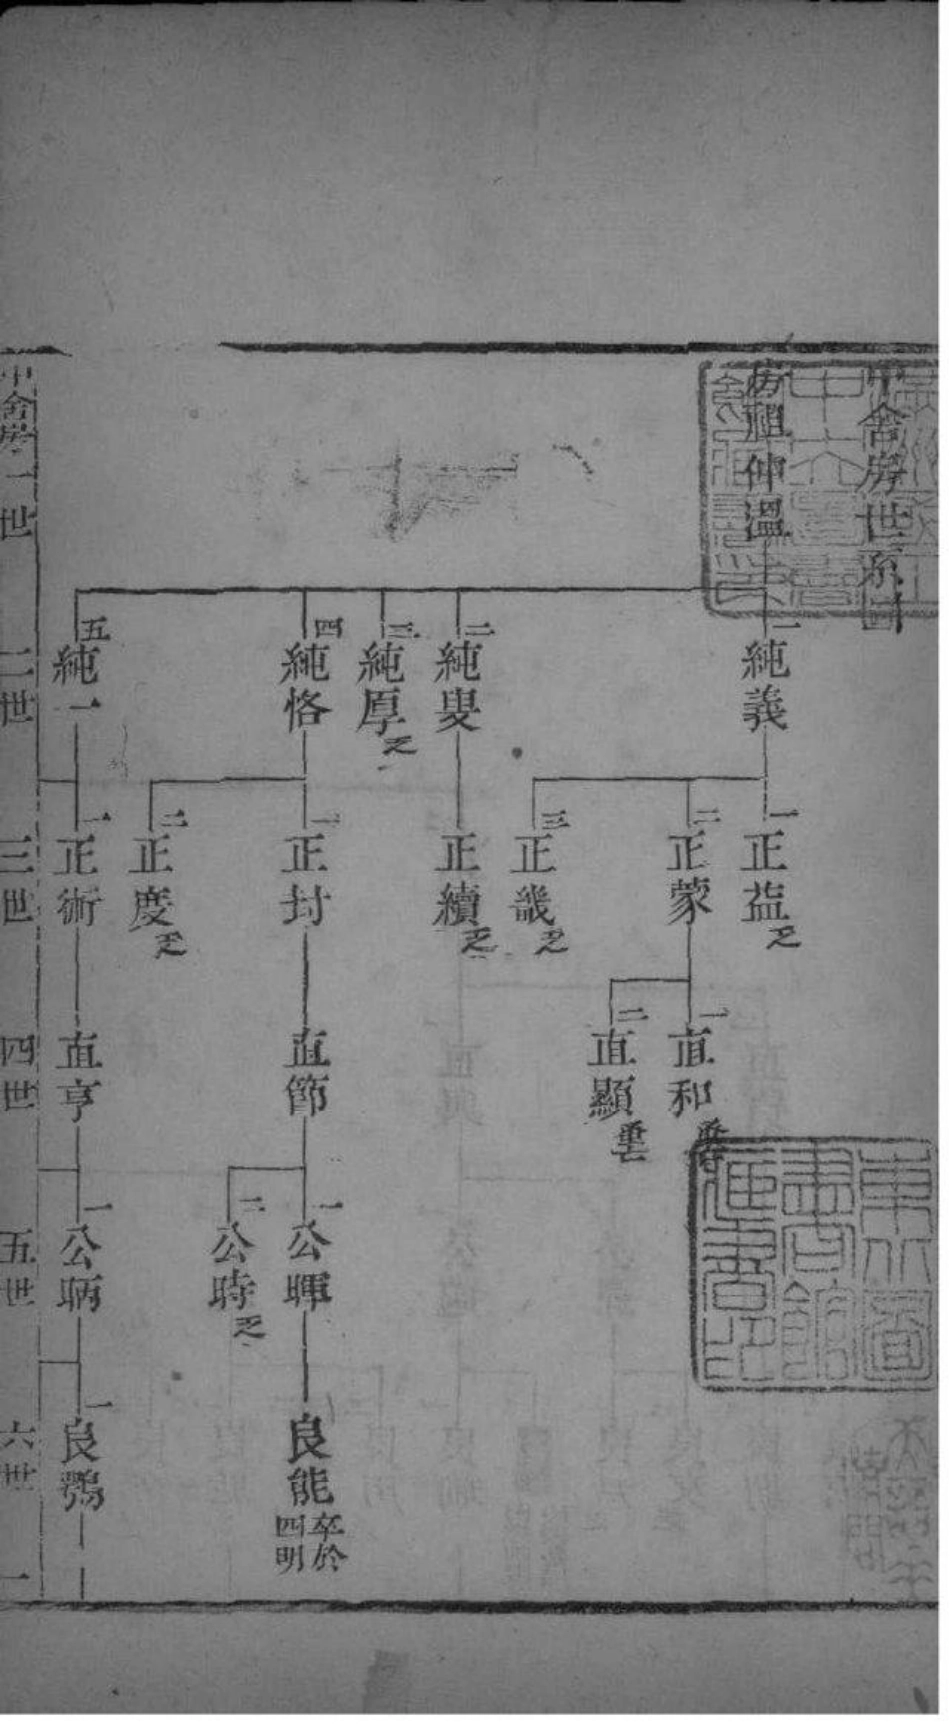 中舍房世系圖
房祖仲溫
一純義
二純叟
三純厚乏
四純恪
五純一
一正益乏
二正蒙
三正畿乏
正續乏
一正封
二正慶乏
一正術
一直和
二直顯
直節
直亨
一公暉
二公時乏
一公昞
良能卒於四明
一良鶚
中舍房一世
二世
三世
四世
五世
六世
一